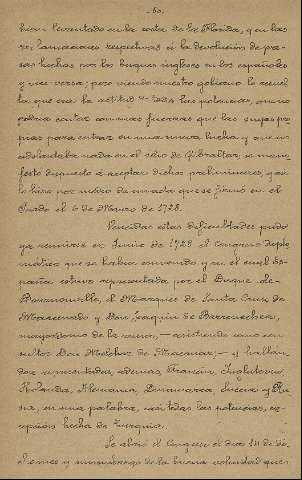 - 50 -
bian levantado en la costa de la Florida, y en las
reclamaciones respectivas á la devolucion de pre-
sas hechas por los buques ingleses en los españoles
y vice-versa; pero viendo nuestro gobierno la resuel-
ta que era la actitud de todas las potencias, que no
podia contar con mas fuerzas que las suyas pro-
pias para entrar en una nueva lucha y que no
adelantaba nada en el sitio de Gibraltar, se mani-
festó dispuesto á aceptar dichos preliminares, y así
lo hizo por medio de un acta que se firmó en el
Pardo el 6 de Marzo de 1728.
Vencidas estas dificultades pudo
ya reunirse en Junio de 1728 el Congreso diplo-
mático que se habia convenido y en el cual Es-
paña estuvo representada por el Duque de
Bournonville, el Marques de Santa Cruz de
Marcenado y Don Joaquin de Barrenechea,
mayordomo de la reina, — asistiendo como con-
sultor Don Melchor de Macanaz; — y hallán-
dose representadas, ademas, Francia, Inglaterra,
Holanda, Alemania, Dinamarca, Suecia y Ru-
sia, en una palabra, casi todas las potencias, es-
cepcion hecha de Turquia.
Se abrió el Congreso el dia 14 de di-
cho mes y sin embargo de la buena voluntad que